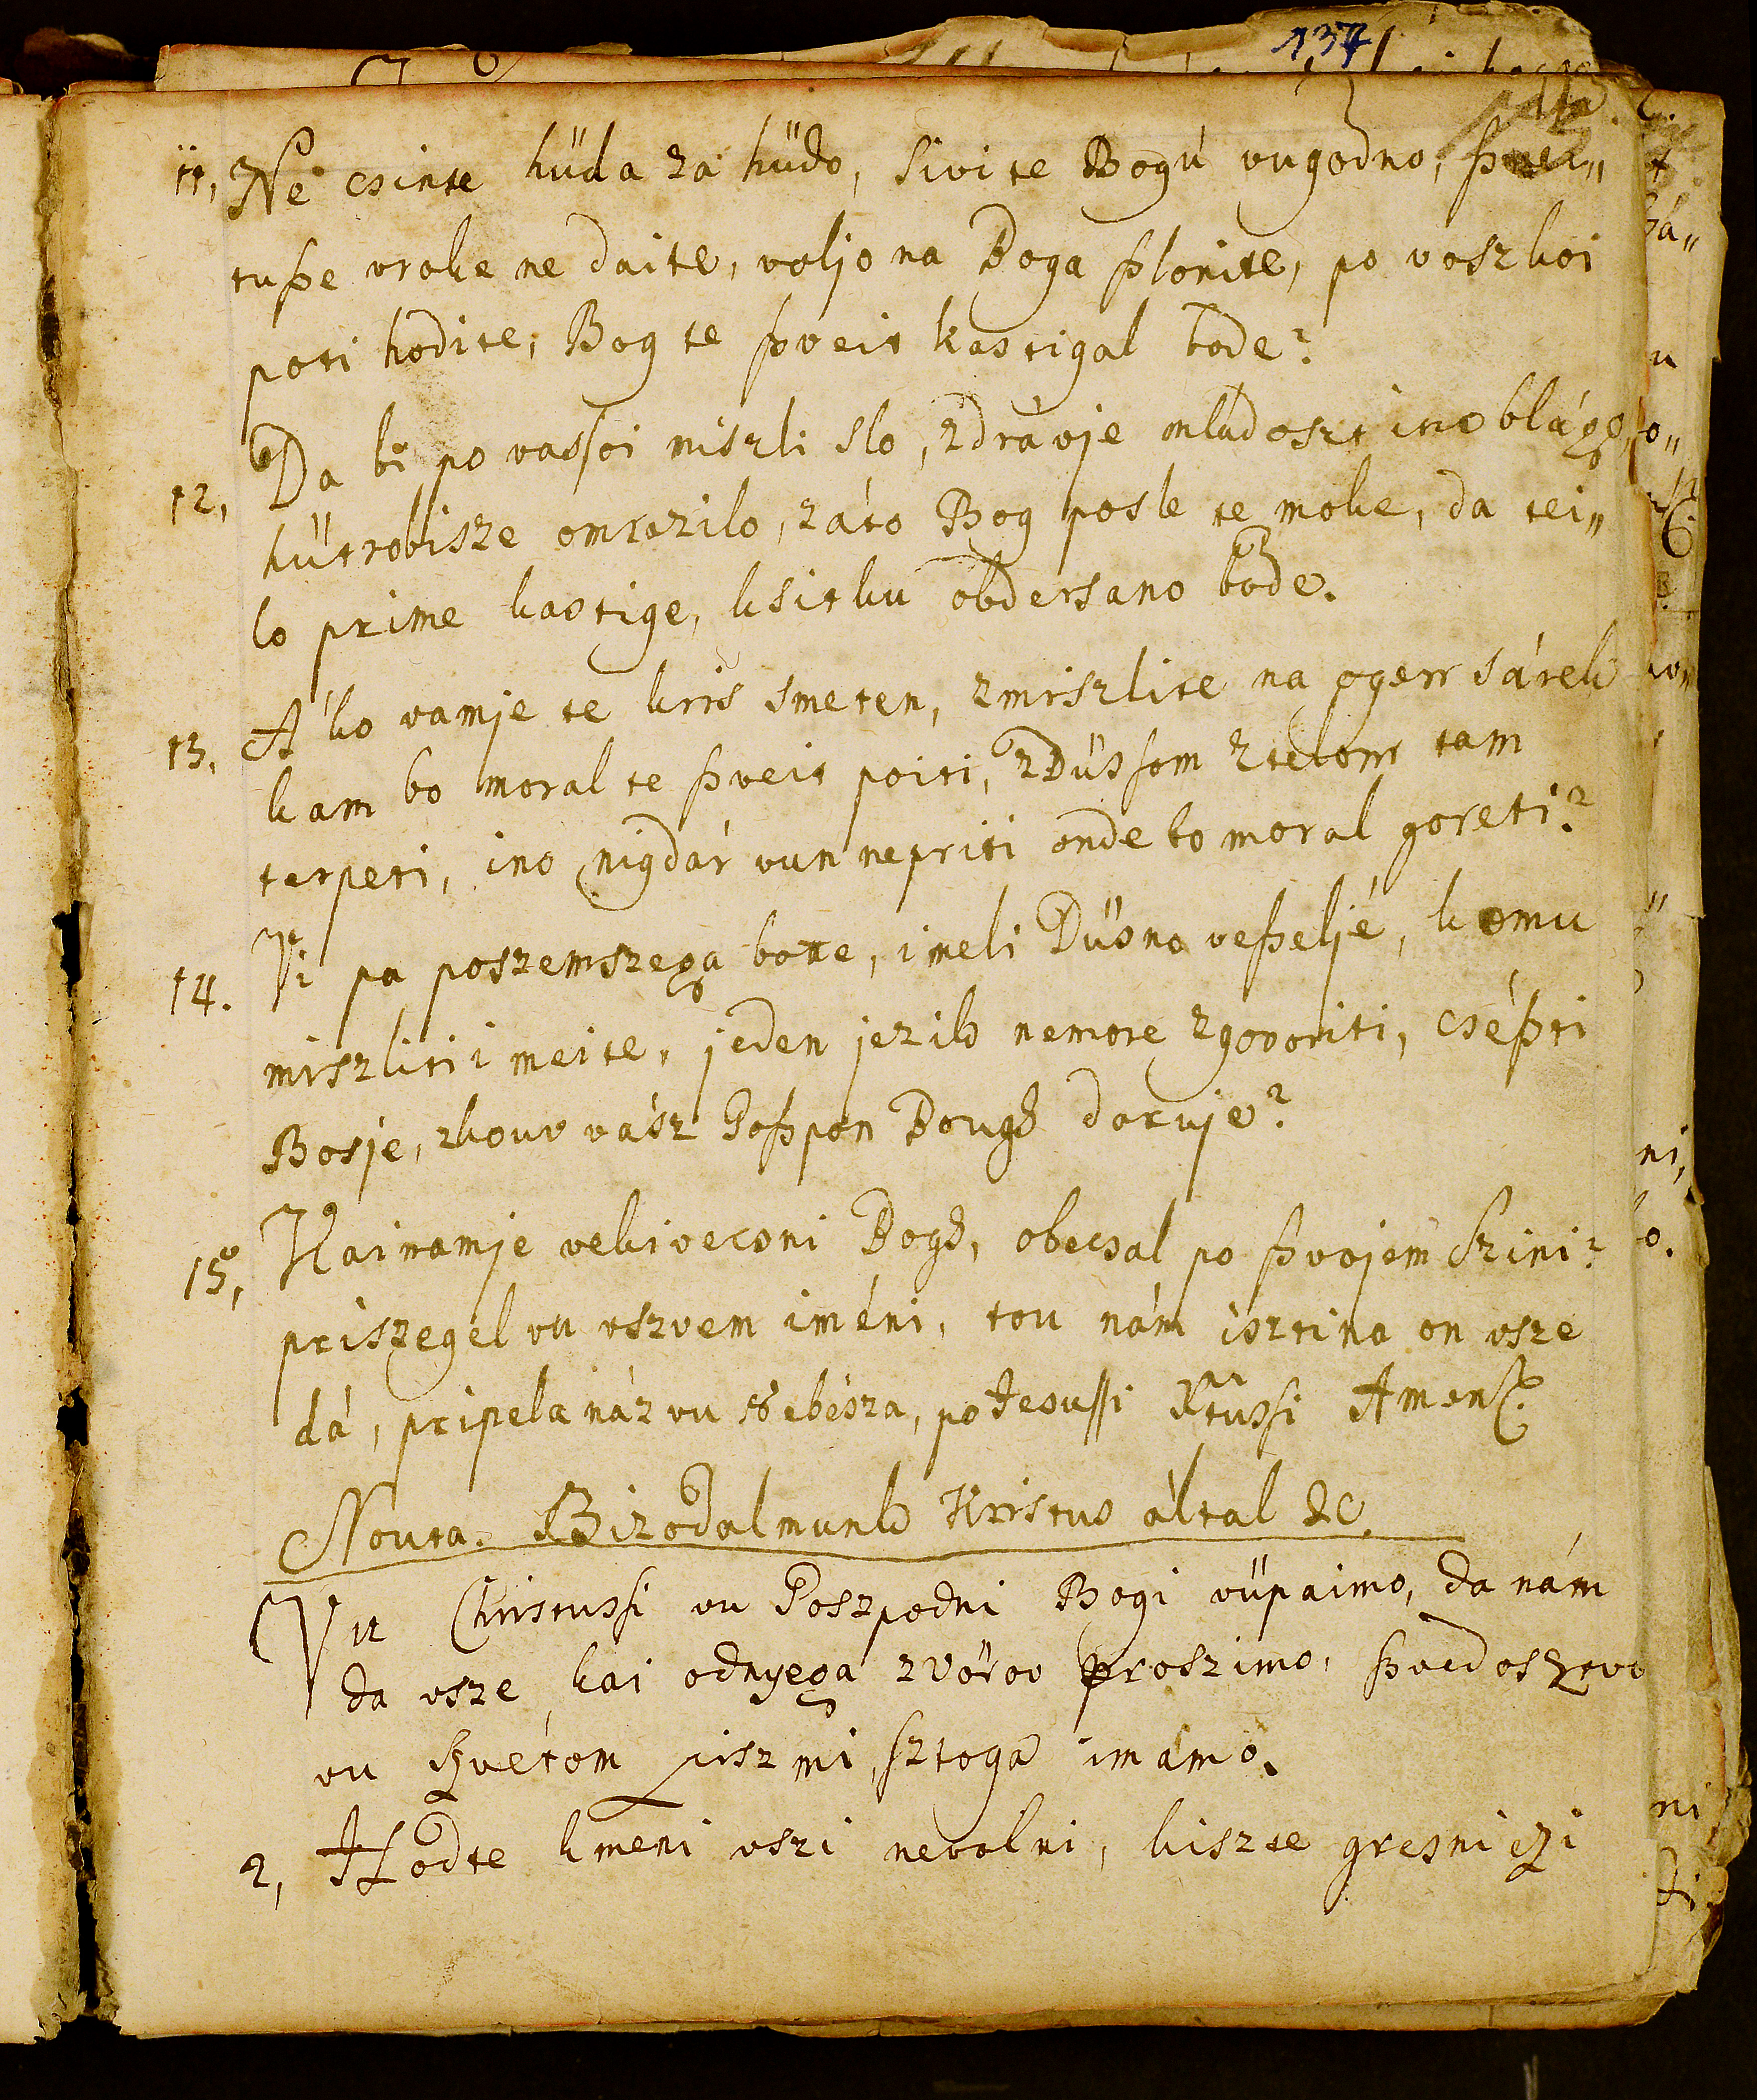 137
11, Ne csinte hüda za hüdo, sivite Bogú vugodno, ſzvei„
tuſze vroke ne daite, voljo na Boga ſzlonite, po voszkoi
poti hodite, Bog te ſzveit kastigal bode?
12, Da bi po vasſoi miszli slo, zdrávje mladoszt ino blágo,
hütrobisze omrazilo, záto Bog posle te moke, da tei„
lo prime kastige, ksitku obdersano bode.
13, Ako vamje te kris smeten, zmiszlite na ogen sárek
kam bo moral te ſzveit poiti, zDüsſom ztelom tam
terpeti, ino nigdár vun nepriti onde bo moral goreti?
14. Vi pa poszemszega bote, imeli Düsno veſzeljé, komu
miszliti i meite, jeden jezik nemore zgovoriti, cséſzti
Bosje, zkouv vász Goſzpon Bougħ daruje?
15, Kainamje vekivecsni Bogħ, obecsal po ſzvojem Szini?
priszegel vu vszvem iméni, tou nám isztina on vsze
dá, pripela náz vu Nebésza, po Jesuſſi Krtusſi Amen.
Nouta. Bizodalmunk Kristus által &c.
Vu Christusſi vu Goszpodni Bogi vüpaimo, da nám
da vsze kai odnyega zvörov proszimo, ſzvedosztvo
vu szvétom piszmi, sztoga imámo.
2, Hodte kmeni vszi nevolni, kiszte gresniczi